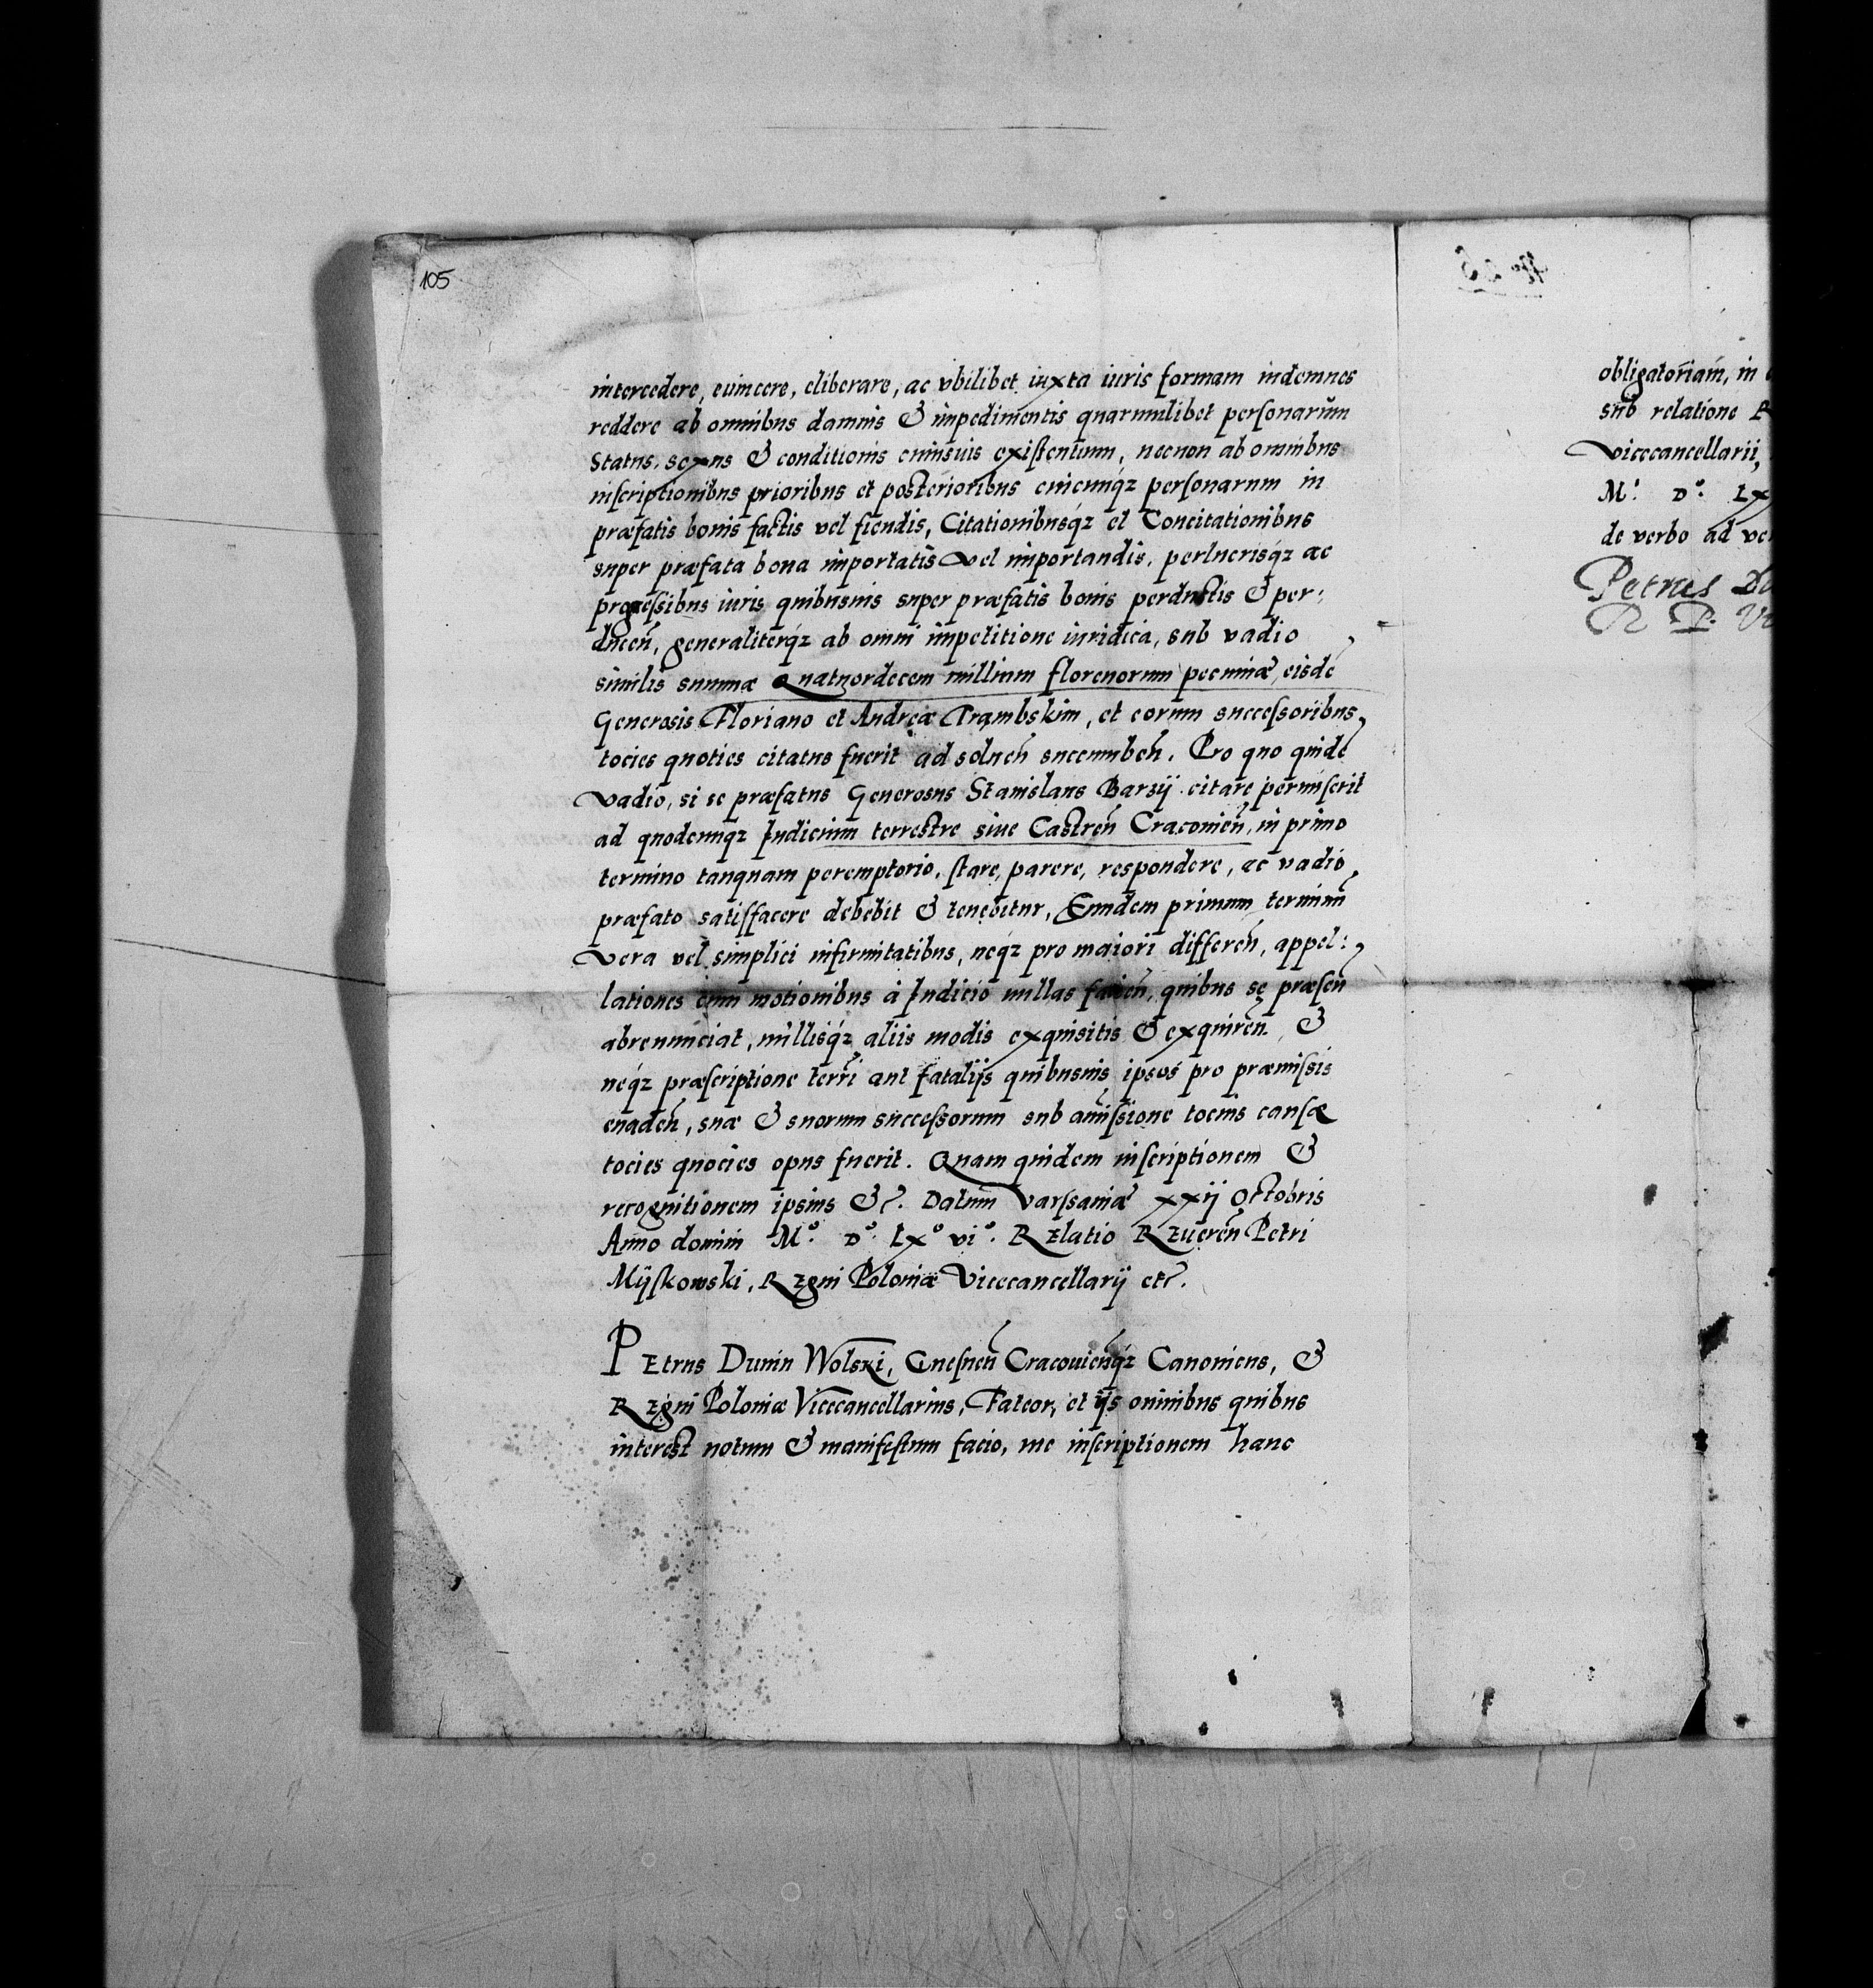 105
intercedere, euincere, eliberare, ac vbilibet iuxta iuris formam indemnes
reddere ab omnibus damnis & impedimentis quarumlibet personarum
Status, sexus & conditionis cuiusuis existentium, necnon ab omnibus
inscriptionibus prioribus et posterioribus cuicunqz personarum in
præfatis bonis factis vel fiendis, Citationibusqz et Concitationibus
super præfata bona importatis vel importandis, perlucrisqz ac
progressibus iuris quibusuis super præfatis bonis perductis & per:
ducen̄, generaliterqz ab omni impetitione iuridica, sub vadio
similis summæ Quatuordecem millium florenorum pecuniæ, eisdē
Generosis Floriano et Andreæ Trambskim, et eorum successoribus,
tocies quoties citatus fuerit ad soluen̄ succumben̄. Pro quo quidē
vadio, si se præfatus Generosus Stanislaus Barzij citare permiserit
ad quodcunqz Iudicium terrestre siue Castren̄ Cracouien̄, in primo
termino tanquam peremptorio, stare, parere, respondere, ac vadio
præfato satisfacere debebit & tenebitur, Eundem primum terminū
vera vel simplici infirmitatibus, neqz pro maiori differen̄, appel:
lationes cum motionibus à Iudicio nullas facien̄, quibus se præsen̄
abrenunciat, nullisqz aliis modis exquisitis & exquiren̄. &
neqz præscriptione terrī aut fatalijs quibusuis ipsos pro præmissis
euaden̄, suæ & suorum successorum sub amissione tocius causæ
tocies quocies opus fuerit. Quam quidem inscriptionem &
recognitionem ipsius &c. Datum Varssauiæ xxij Octobris
Anno domini M.º D.º Lxº viº. Relatio Reueren̄ Petri
Mÿskowski, Regni Poloniæ Vicecancellarij etc.
PEtrus Dunin Wolski, Gnesnen̄ Cracouien̄qz Canonicus, &
Regni Poloniæ Vicecancellarius, Fateor, et ijs omnibus quibus
interest notum & manifestum facio, me inscriptionem hanc
obligatoriam, in
sub relatione R
Vicecancellarii,
M.º D.º Lx
de verbo ad ver
Petrus Du
R P. Vi